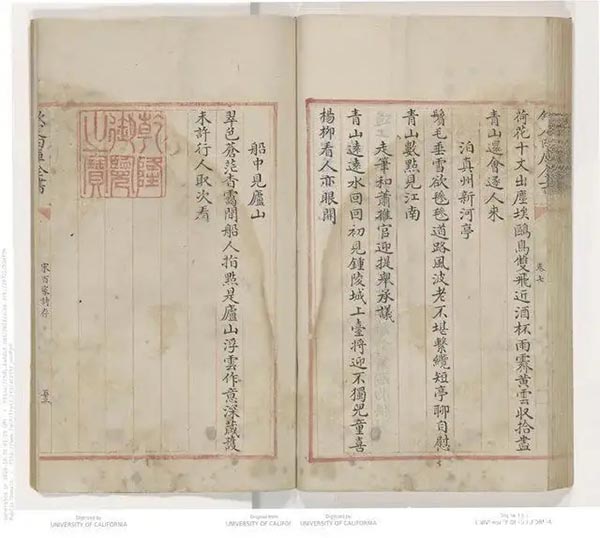 卷七
荷花十丈出塵埃鷗鳥雙飛近酒杯雨霽黃雲収拾盡
青山還會逐人来
泊真州新河亭
鬢毛垂雪欲毿毿道路風波老不堪繫纜短亭聊自慰
青山數點見江南
走筆和蕭推官迎提舉承議
青山遠遠水回回初見鍾陵城上臺將迎不獨兒童喜
楊柳看人亦眼開
船中見廬山
翠色蒼茫杳靄間船人指點是廬山浮雲作意深藏護
未許行人取次看
乾隆
御覽
之寶
宋百家詩存
Digitized by
UNIVERSITY OF CALIFORNIA
Original from
UNIVERSITY OF CALIFOR
Digitized by
UNIVERSITY OF CALIFORNIA